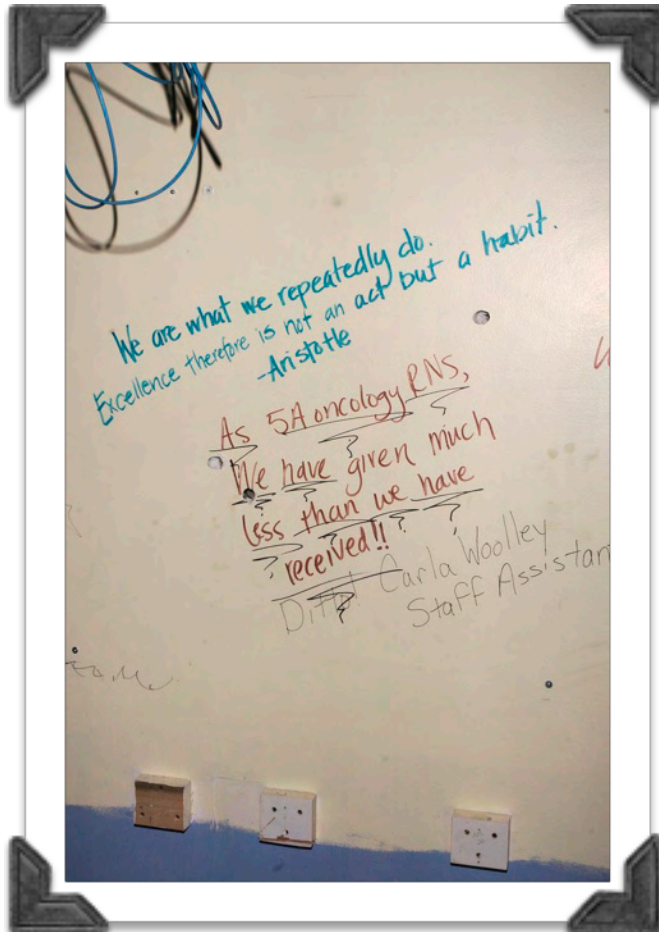 We are what we repeatedly do.
Excellence therefore is not an act but a habit.
-Aristotle
As 5A oncology RNS,
We have given much
less than we have
received!!
Ditto! Carla Woolley
Staff Assistan